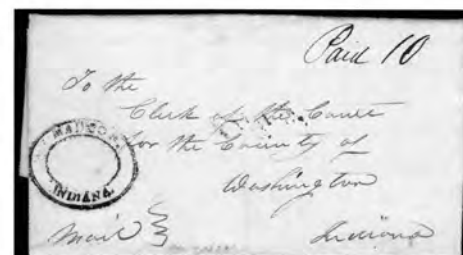 Paid 10
To the
Clerk of the Court
for the County of
Washington
MADISON
INDIANA
Mail
Indiana